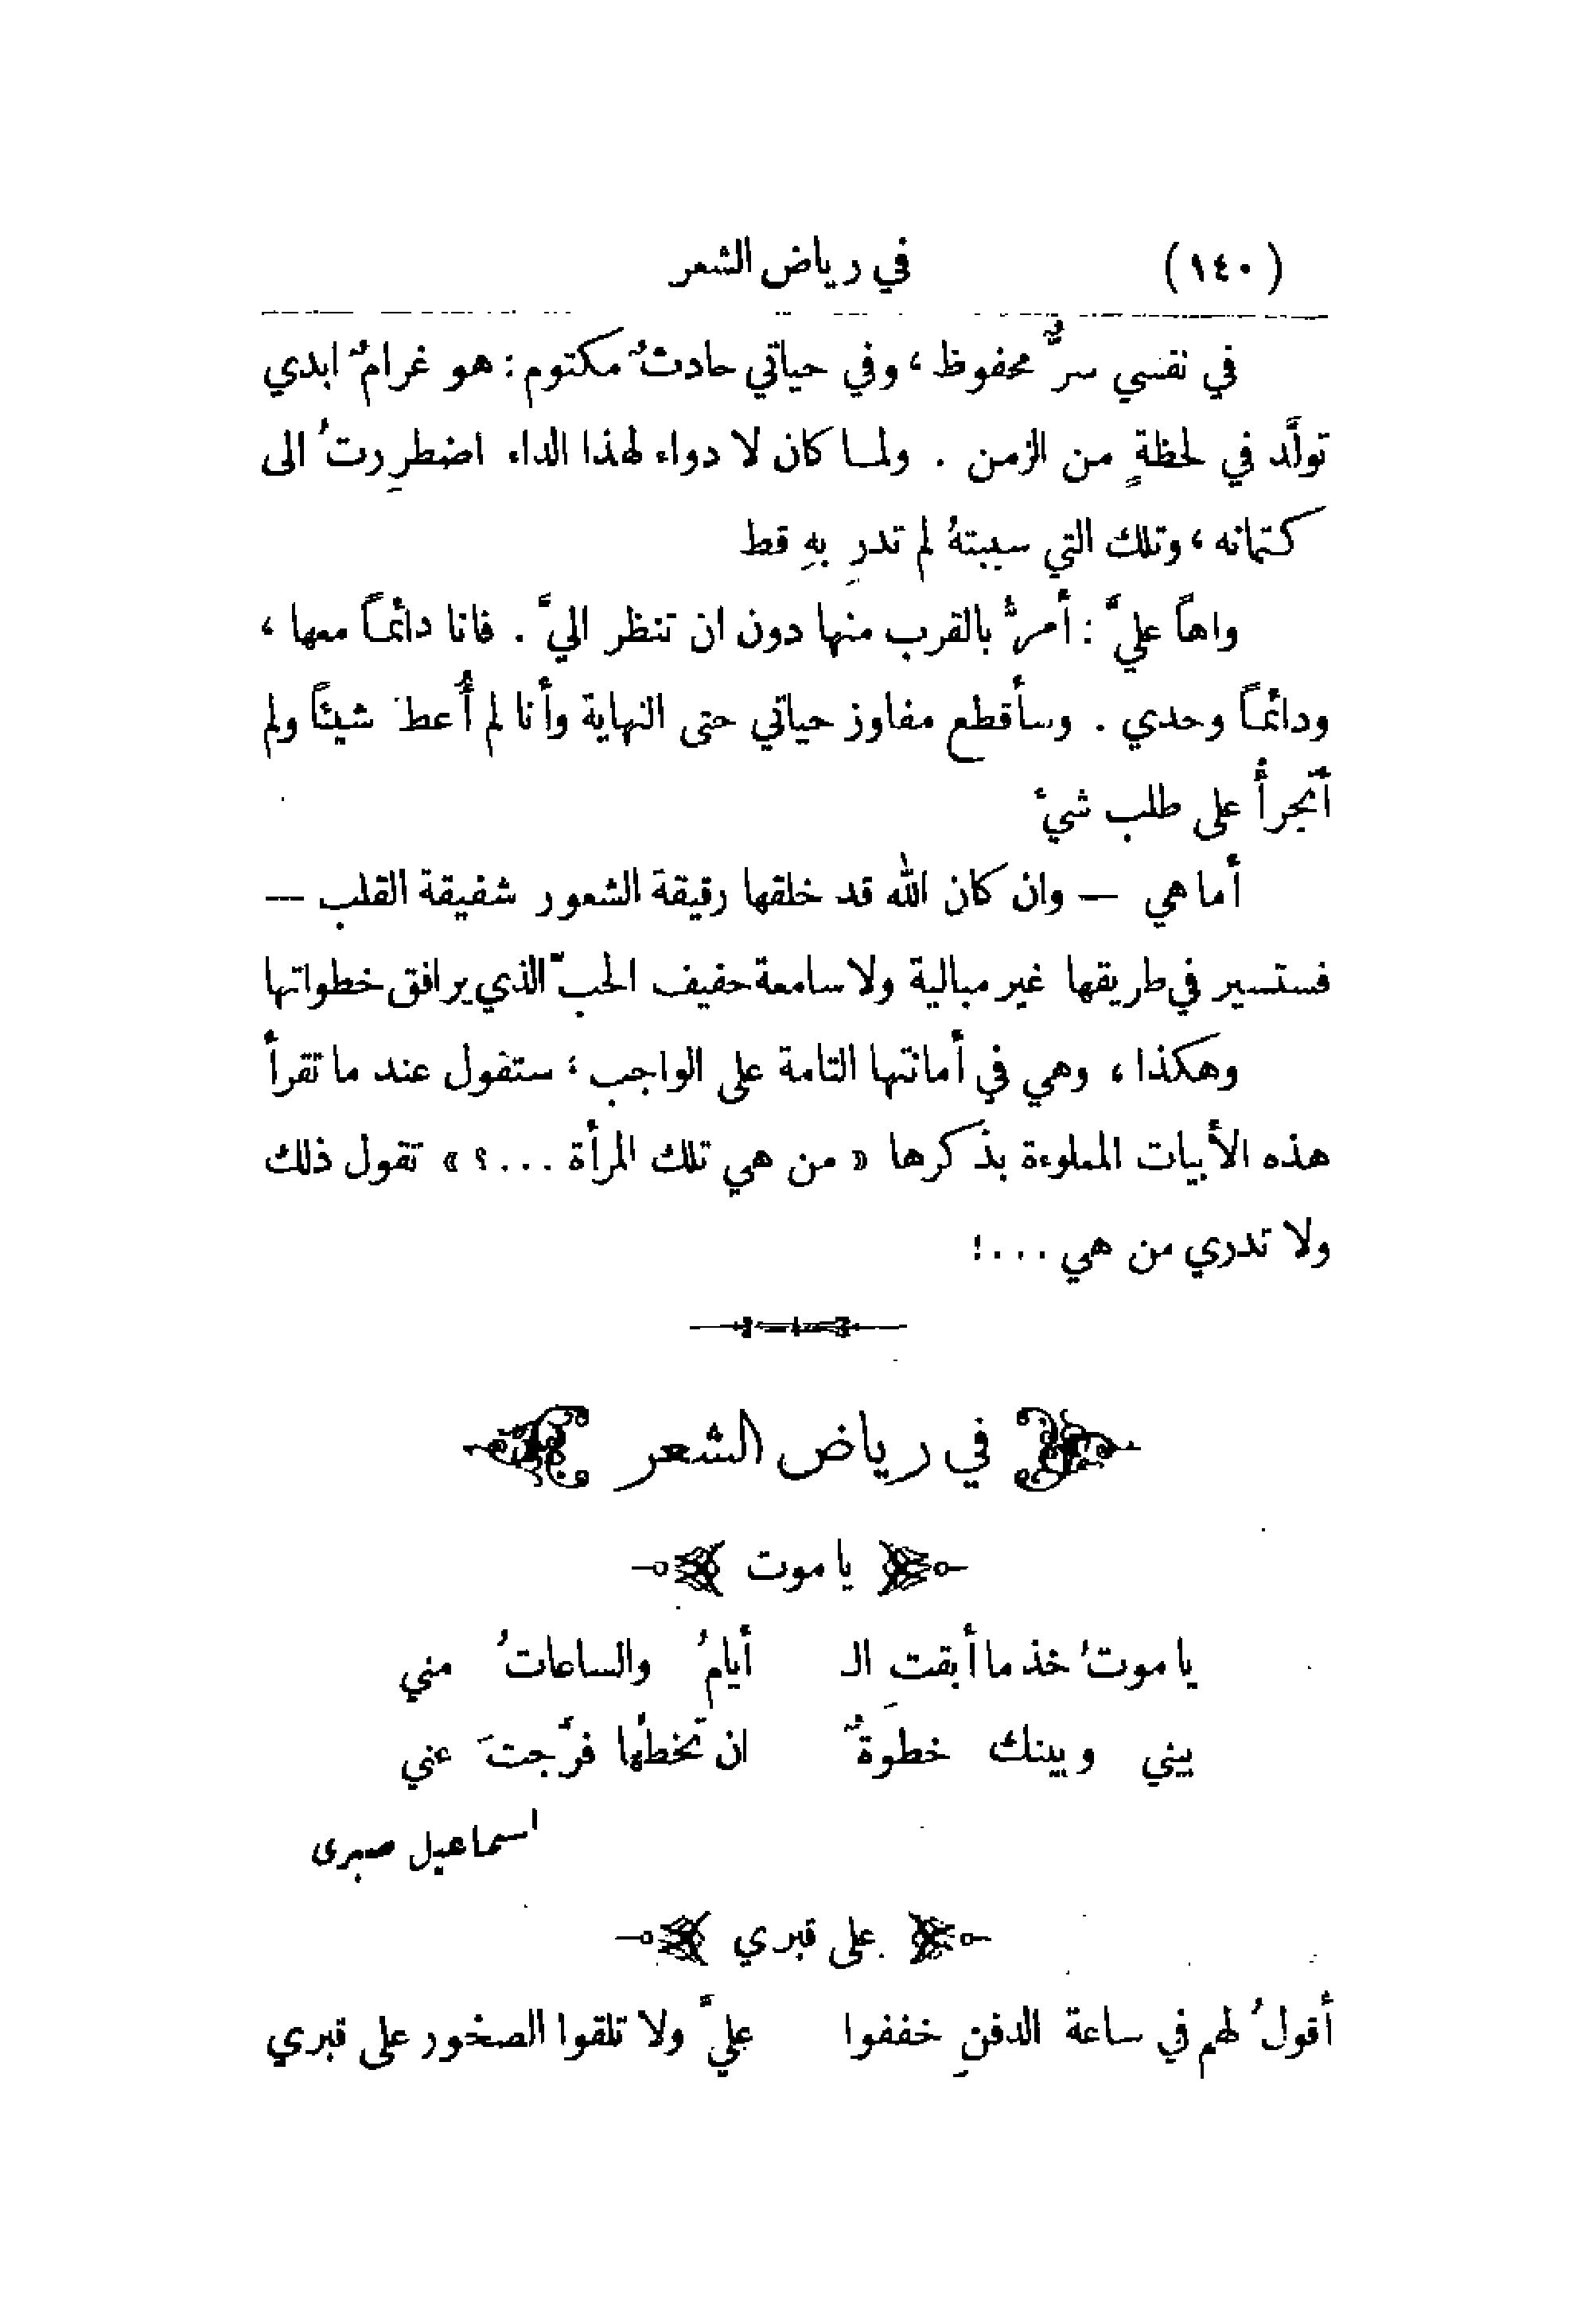 (١٤٠) في رياض الشعر
في نفسي سرٌّ محفوظ، وفي حياتي حادثٌ مكتوم: هو غرامٌ ابدي
تولَّد في لحظةٍ من الزمن . ولمـا كان لا دواء لهذا الداء اضطرِرتُ الى
كتمانه، وتلك التي سببتهُ لم تدرِ بهِ قط
واهاً عليَّ : أمرُّ بالقرب منها دون ان تنظر اليَّ . فانا دائمـاً معها،
ودائمـاً وحدي . وسأقطع مفاوز حياتي حتى النهاية وأنا لم أُعطَ شيئاً ولم
أتجرأْ على طلب شيءٍ
أما هي — وان كان الله قد خلقها رقيقة الشعور شفيقة القلب —
فستسير في طريقها غير مبالية ولا سامعة حفيف الحبّ الذي يرافق خطواتها
وهكذا، وهي في أمانتها التامة على الواجب ؛ ستقول عند ما تقرأ
هذه الأبيات المملوءة بذكرها « من هي تلك المرأة ...؟ » تقول ذلك
ولا تدري من هي ...!
في رياض الشعر
يا موت
يا موتُ خذ ما أبقتِ الـ أيامُ والساعاتُ مني
بيني وبينك خطوَةٌ ان تخطُها فرَّجتَ عني
اسماعيل صبرى
على قبري
أقولُ لهم في ساعة الدفنِ خففوا عليَّ ولا تلقوا الصخور على قبري